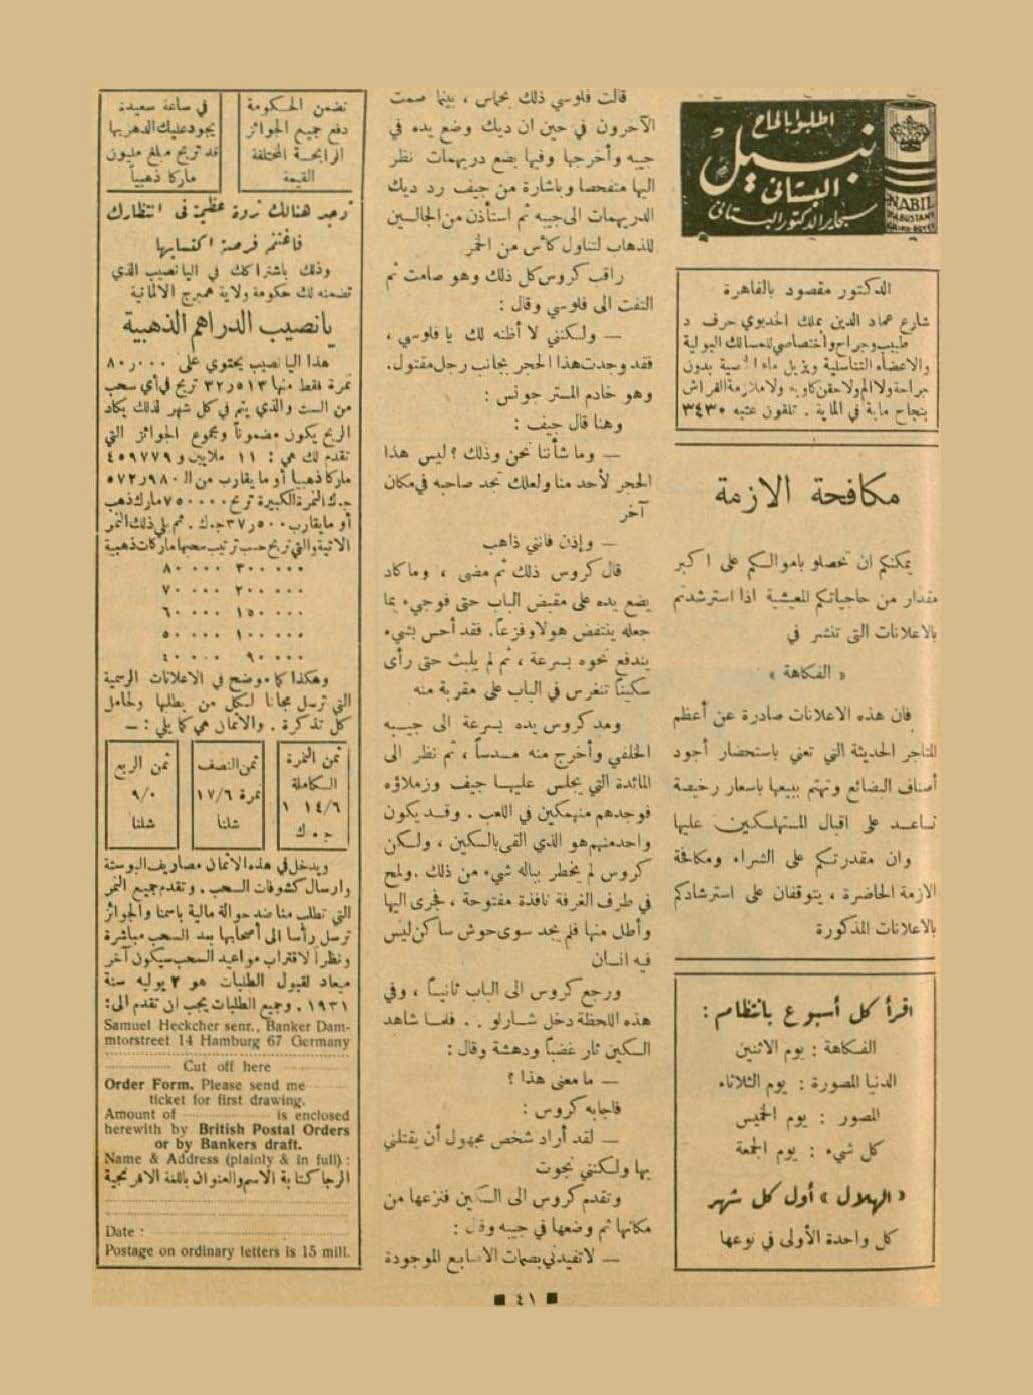 اطلبوا بالحاح
نبيل
البستاني
سجاير الدكتور البستاني
NABIL
الدكتور مقصود بالقاهرة
شارع عماد الدين بملك الخديوي حرف د
طبيب وجراح واختصاصي للمسالك البولية
والاعضاء التناسلية ويزيل ماء الخصية بدون
جراحة ولا الم ولا حقن كاوية ولا ملازمة الفراش
بنجاح مابة في الماية . تلفون عتبه ٣٤٣٠
مكافحة الازمة
يمكنكم ان تحصلو باموالكم على اكبر
مقدار من حاجياتكم المعيشية اذا استرشدتم
بالاعلانات التى تنشر في
« الفكاهة »
فان هذه الاعلانات صادرة عن أعظم
المتاجر الحديثة التي تعني باستحضار أجود
أصناف البضائع وتهتم ببيعها باسعار رخيصة
تساعد على اقبال المستهلكين عليها
وان مقدرتكم على الشراء ومكافحة
الازمة الحاضرة ، يتوقفان على استرشادكم
بالاعلانات المذكورة
اقرأ كل أسبوع بانتظام :
الفكاهة : يوم الاثنين
الدنيا المصورة : يوم الثلاثاء
المصور : يوم الخميس
كل شيء : يوم الجمعة
« الهلال » أول كل شهر
كل واحدة الأولى في نوعها
قالت فلوسي ذلك بحماس ، بينما صمت
الآخرون في حين ان ديك وضع يده في
جيبه وأخرجها وفيها بضع دريهمات نظر
اليها متفحصا وباشارة من جيف رد ديك
الدريهمات الى جيبه ثم استأذن من الجالسين
للذهاب لتناول كأس من الخمر
راقب كروس كل ذلك وهو صامت ثم
التفت الى فلوسي وقال :
— ولكنني لا أظنه لك يا فلوسي ،
فقد وجدت هذا الحجر بجانب رجل مقتول .
وهو خادم المستر جونس :
وهنا قال جيف :
— وما شأننا نحن وذلك ؟ ليس هذا
الحجر لأحد منا ولعلك تجد صاحبه في مكان
آخر
— وإذن فانني ذاهب
قال كروس ذلك ثم مضى ، وما كاد
يضع يده على مقبض الباب حتى فوجيء بما
جعله ينتفض هولا وفزعاً . فقد أحس بشيء
يندفع نحوه بسرعة ، ثم لم يلبث حتى رأى
سكيناً تنغرس في الباب على مقربة منه
ومد كروس يده بسرعة الى جيبه
الخلفي وأخرج منه مسدساً ، ثم نظر الى
المائدة التي يجلس عليها جيف وزملاؤه
فوجدهم منهمكين في اللعب . وقد يكون
واحد منهم هو الذي القى بالسكين ، ولكن
كروس لم يخطر بباله شيء من ذلك . ولمح
في طرف الغرفة نافذة مفتوحة ، فجرى اليها
وأطل منها فلم يجد سوى حوش ساكن ليس
فيه انسان
ورجع كروس الى الباب ثانياً ، وفي
هذه اللحظة دخل شارلو . . فلما شاهد
السكين ثار غضباً ودهشة وقال :
— ما معنى هذا ؟
فاجابه كروس :
— لقد أراد شخص مجهول أن يقتلني
بها ولكنني نجوت
وتقدم كروس الى السكين فنزعها من
مكانها ثم وضعها في جيبه وقال :
— لا تفيدني بصمات الاصابع الموجودة
تضمن الحكومة
دفع جميع الجوائز
الرابحة المختلفة
القيمة
في ساعة سعيدة
يجود عليك الدهر بها
قد تربح مبلغ مليون
ماركا ذهبياً
توجد هنالك ثروة عظيمة في انتظارك
فاغتنم فرصة اكتسابها
وذلك باشتراكك في اليانصيب الذي
تضمنه لك حكومة ولاية همبرج الالمانية
يانصيب الدراهم الذهبية
هذا اليانصيب يحتوي على ٨٠٫٠٠٠
نمرة فقط منها ٣٢٫٥١٣ تربح في أي سحب
من الست والذي يتم في كل شهر لذلك يكاد
الربح يكون مضموناً ومجموع الجوائز التي
تقدم لك هي : ١١ ملايين و ٤٥٩٧٧٩
ماركا ذهبيا أو ما يقارب من الـ ٥٧٢٫٩٨٠
ج.ك النمرة الكبيرة تربح ٧٥٠٠٠٠ مارك ذهب
أو ما يقارب ٣٧٫٥٠٠ ج.ك . ثم يلي ذلك النمر
الاتية والتي تربح حسب ترتيب سحبها ماركات ذهبية
٣٠٠٠٠٠ ٨٠٠٠٠
٢٠٠٠٠٠ ٧٠٠٠٠
١٥٠٠٠٠ ٦٠٠٠٠
١٠٠٠٠٠ ٥٠٠٠٠
٩٠٠٠٠ ٤٠٠٠٠
وهكذا كما موضح في الاعلانات الرسمية
التي ترسل مجانا لكل من يطلبها ولحامل
كل تذكرة . والاثمان هي كما يلي : —
ثمن النمرة
الكاملة
١ ١٤/٦
ج . ك
ثمن النصف
نمرة ١٧/٦
شلنا
ثمن الربع
٩/٠
شلنا
ويدخل في هذه الاثمان مصاريف البوستة
وارسال كشوفات السحب . وتقدم جميع النمر
التي تطلب منا ضد حوالة مالية باسمنا والجوائز
ترسل رأسا الى أصحابها بعد السحب مباشرة
ونظراً لاقتراب مواعيد السحب سيكون آخر
ميعاد لقبول الطلبات هو ٢ يوليه سنة
١٩٣١ . وجميع الطلبات يجب ان تقدم الى :
Samuel Heckcher senr., Banker Dam-
mtorstreet 14 Hamburg 67 Germany
Cut off here
Order Form. Please send me
ticket for first drawing.
Amount of is enclosed
herewith by British Postal Orders
or by Bankers draft.
Name & Address (plainly & in full) :
الرجا كتابة الاسم والعنوان باللغة الافرنجية
Date :
Postage on ordinary letters is 15 mill.
٤١